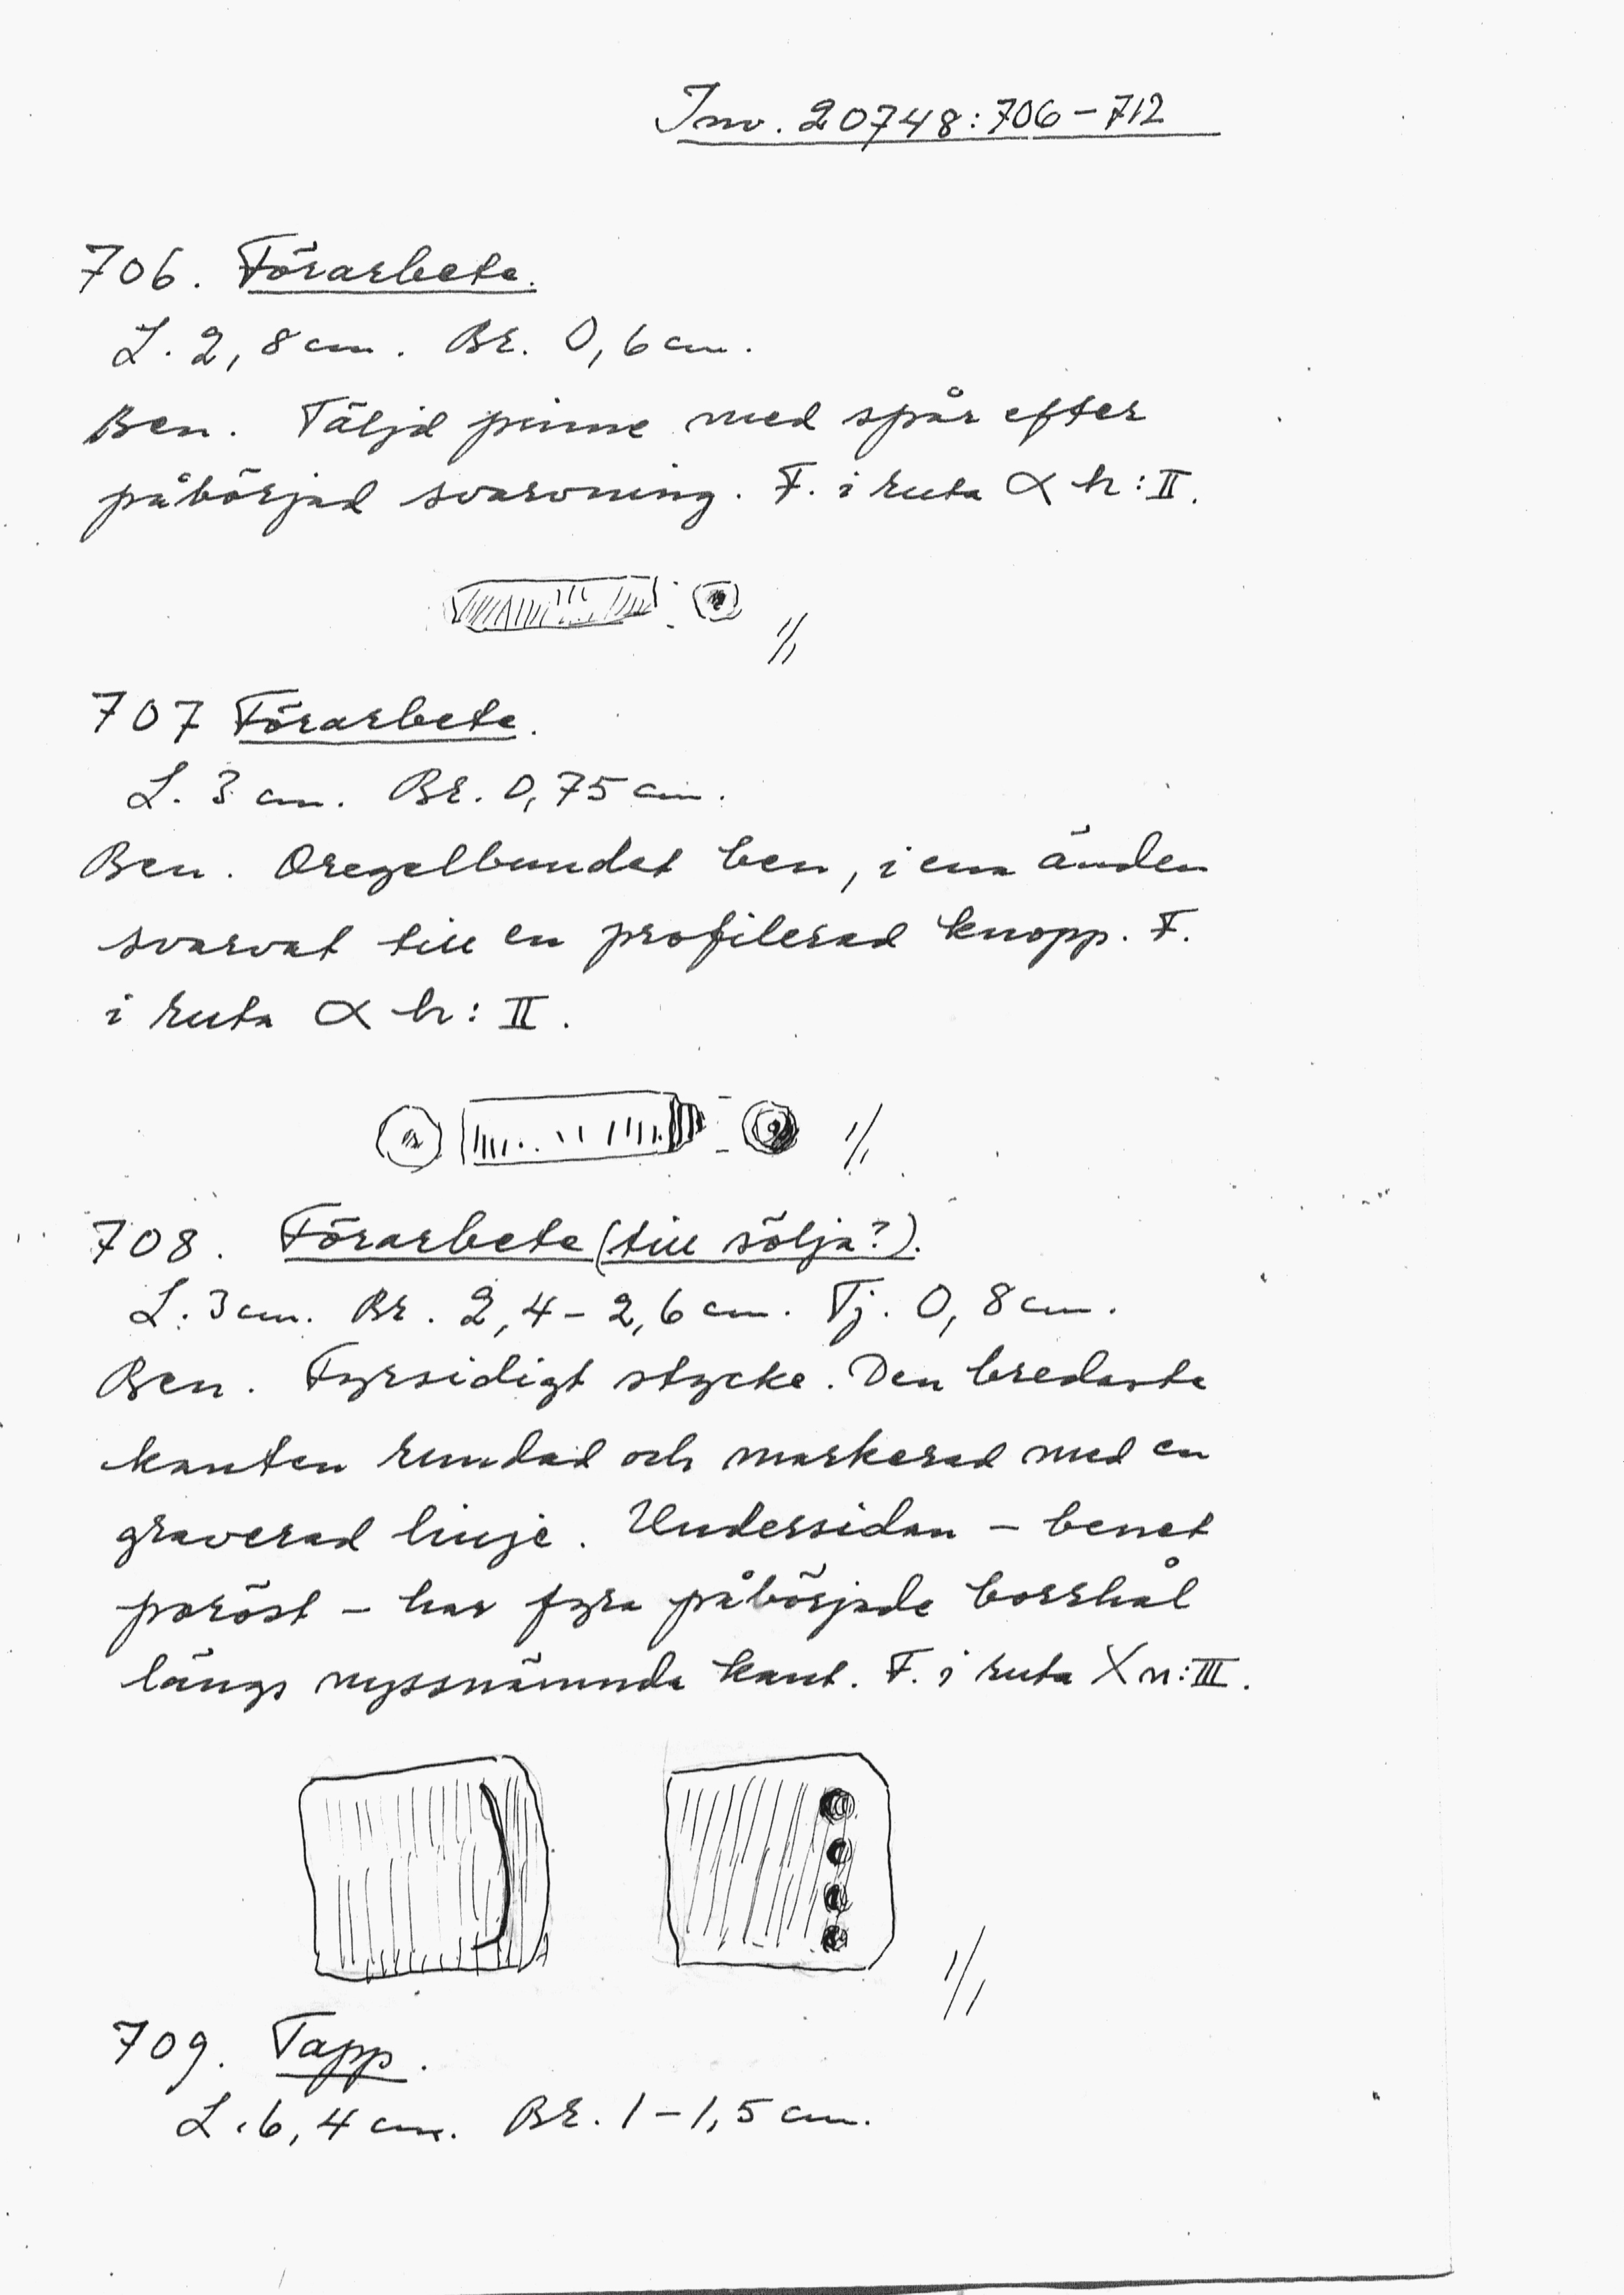 Inv. 20748:706-712
706. Förarbete.
L. 2,8 cm. Br. 0,6 cm.
Ben. Täljd pinne med spår efter
påbörjad svarvning. F. i ruta α h:II.
1/1
707 Förarbete.
L. 3 cm. Br. 0,75 cm.
Ben. Oregelbundet ben, i ena änden
svarvat till en profilerad knopp. F.
i ruta α h: II.
1/1
708. Förarbete (till sölja?).
L. 3 cm. Br. 2,4-2,6 cm. Tj. 0,8 cm.
Ben. Fyrsidigt stycke. Den bredaste
kanten rundad och markerad med en
graverad linje. Undersidan - benet
poröst - har fyra påbörjade borrhål
längs nyssnämnda kant. F. i ruta X n:III.
1/1
709. Tapp.
L. 6,4 cm. Br. 1-1,5 cm.